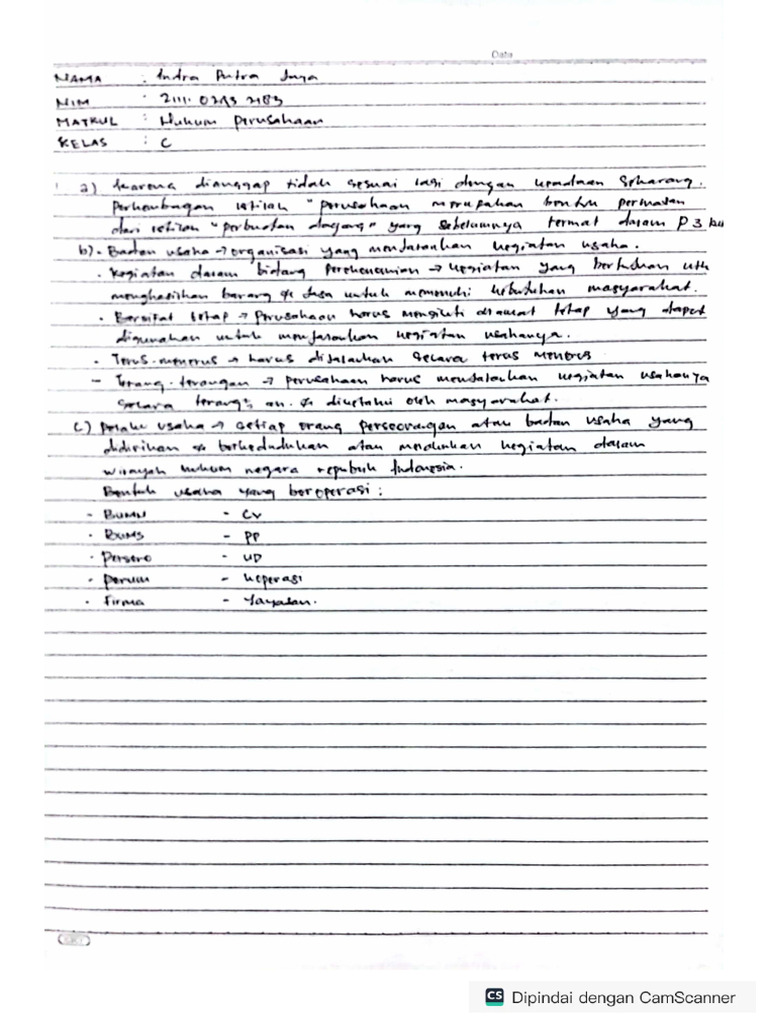 Date
NAMA : Indra Putra Jaya
NIM : 2111.0293 2183
MATKUL : Hukum Perusahaan
KELAS : C
1 a) karena dianggap tidak sesuai lagi dengan keadaan sekarang.
Perkembangan istilah "perusahaan merupakan bentuk
dari istilah "perbuatan dagang" yang sebelumnya termat dalam P 3 ku
b). Badan usaha → organisasi yang menjalankan kegiatan usaha.
• Kegiatan dalam bidang perekonomian → kegiatan yang bertujuan utk
menghasilkan barang & jasa untuk memenuhi kebutuhan masyarakat.
• Bersifat tetap → Perusahaan harus tetap yang dapat
digunakan untuk menjalankan kegiatan usahanya.
• Terus-menerus → harus dijalankan secara terus menerus
- Terang-terangan → perusahaan harus menjalankan kegiatan usahanya
secara terang², an. & diketahui oleh masyarakat.
c) Pelaku usaha → setiap orang perseorangan atau badan usaha yang
didirikan & berkedudukan atau melakukan kegiatan dalam
wilayah hukum negara republik Indonesia.
Bentuk usaha yang beroperasi :
- BUMN - CV
• BUMS - PP
• Persero - UD
- Perum - Koperasi
• Firma - Yayasan.
CS Dipindai dengan CamScanner